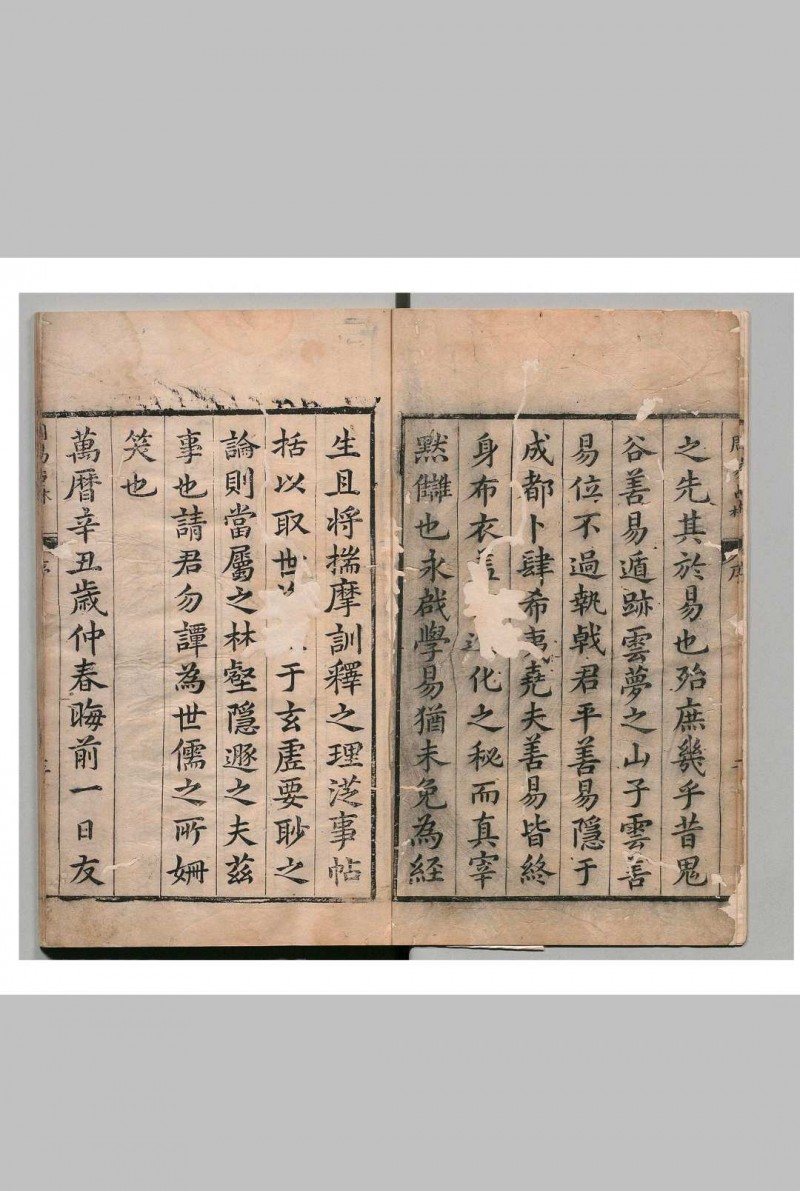 之先其於易也殆庶幾乎昔鬼
谷善易遁跡雲夢之山子雲善
易位不過執戟君平善易隱于
成都卜肆希夷堯夫善易皆終
身布衣蓋化之秘而真宰
黙讎也永啟學易猶未免為經
生且将揣摩訓釋之理泛事帖
括以取世于玄虛要眇之
論則當屬之林壑隱遯之夫茲
事也請君勿譚為世儒之所姍
笑也
萬曆辛丑歲仲春晦前一日友
序